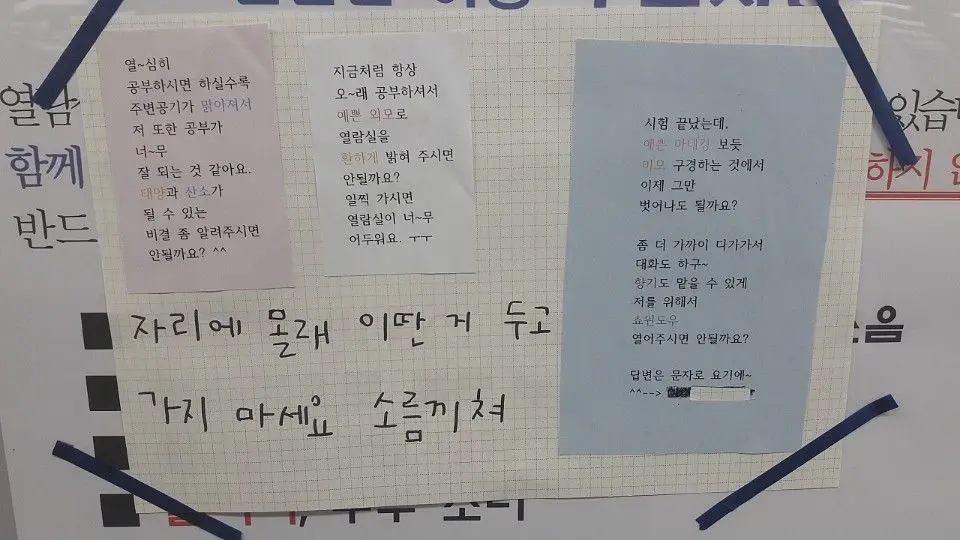 열~심히
공부하시면 하실수록
주변공기가 맑아져서
저 또한 공부가
너~무
잘 되는 것 같아요.
태양과 산소가
될 수 있는
비결 좀 알려주시면
안될까요? ^^
지금처럼 항상
오~래 공부하셔서
예쁜 외모로
열람실을
환하게 밝혀 주시면
안될까요?
일찍 가시면
열람실이 너~무
어두워요. ㅜㅜ
시험 끝났는데,
예쁜 마네킹 보듯
미모 구경하는 것에서
이제 그만
벗어나도 될까요?
좀 더 가까이 다가가서
대화도 하구~
향기도 맡을 수 있게
저를 위해서
쇼윈도우
열어주시면 안될까요?
답변은 문자로 요기에~
^^-->
자리에 몰래 이딴 거 두고
가지 마세요 소름끼쳐
열람
함께
반드
있습
하지
소음